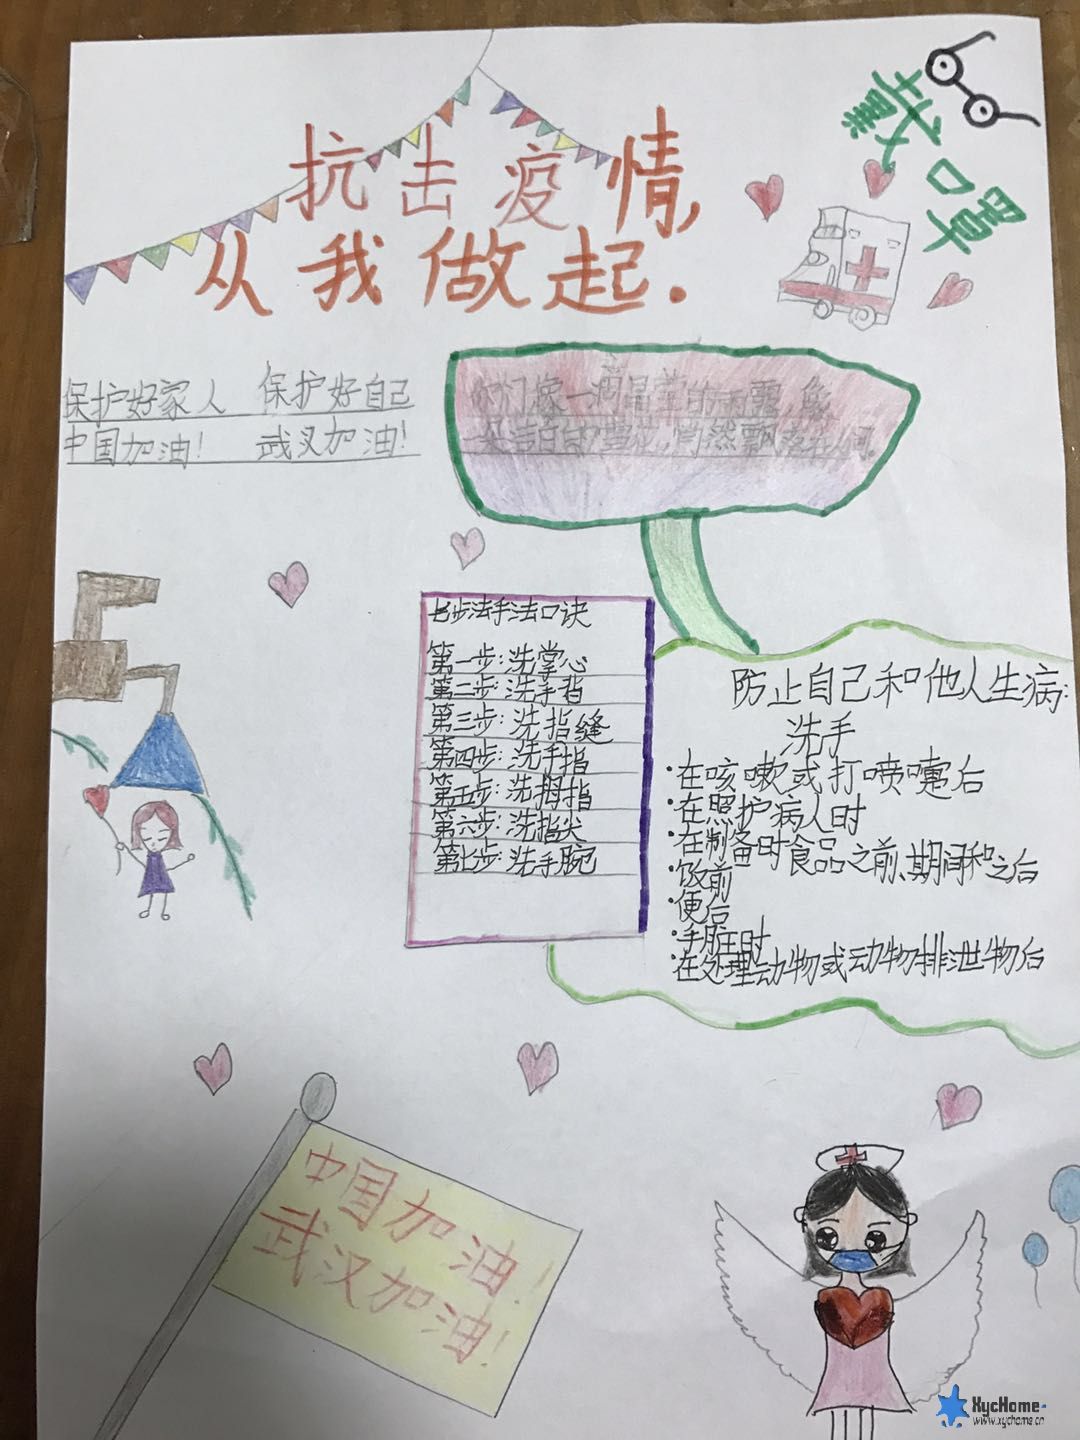 抗击疫情,
从我做起.
戴口罩
保护好家人 保护好自己
中国加油! 武汉加油!
你们像一滴晶莹的雨露,像
一朵洁白的雪花,悄然飘落在人间.
七步法手法口诀
第一步:洗掌心
第二步:洗手背
第三步:洗指缝
第四步:洗手指
第五步:洗拇指
第六步:洗指尖
第七步:洗手腕
防止自己和他人生病:
洗手
·在咳嗽或打喷嚏后
·在照护病人时
·在制备时食品之前、期间和之后
·饭前
·便后
·手脏时
·在处理动物或动物排泄物后
中国加油!
武汉加油!
XycHome
www.xychome.cn